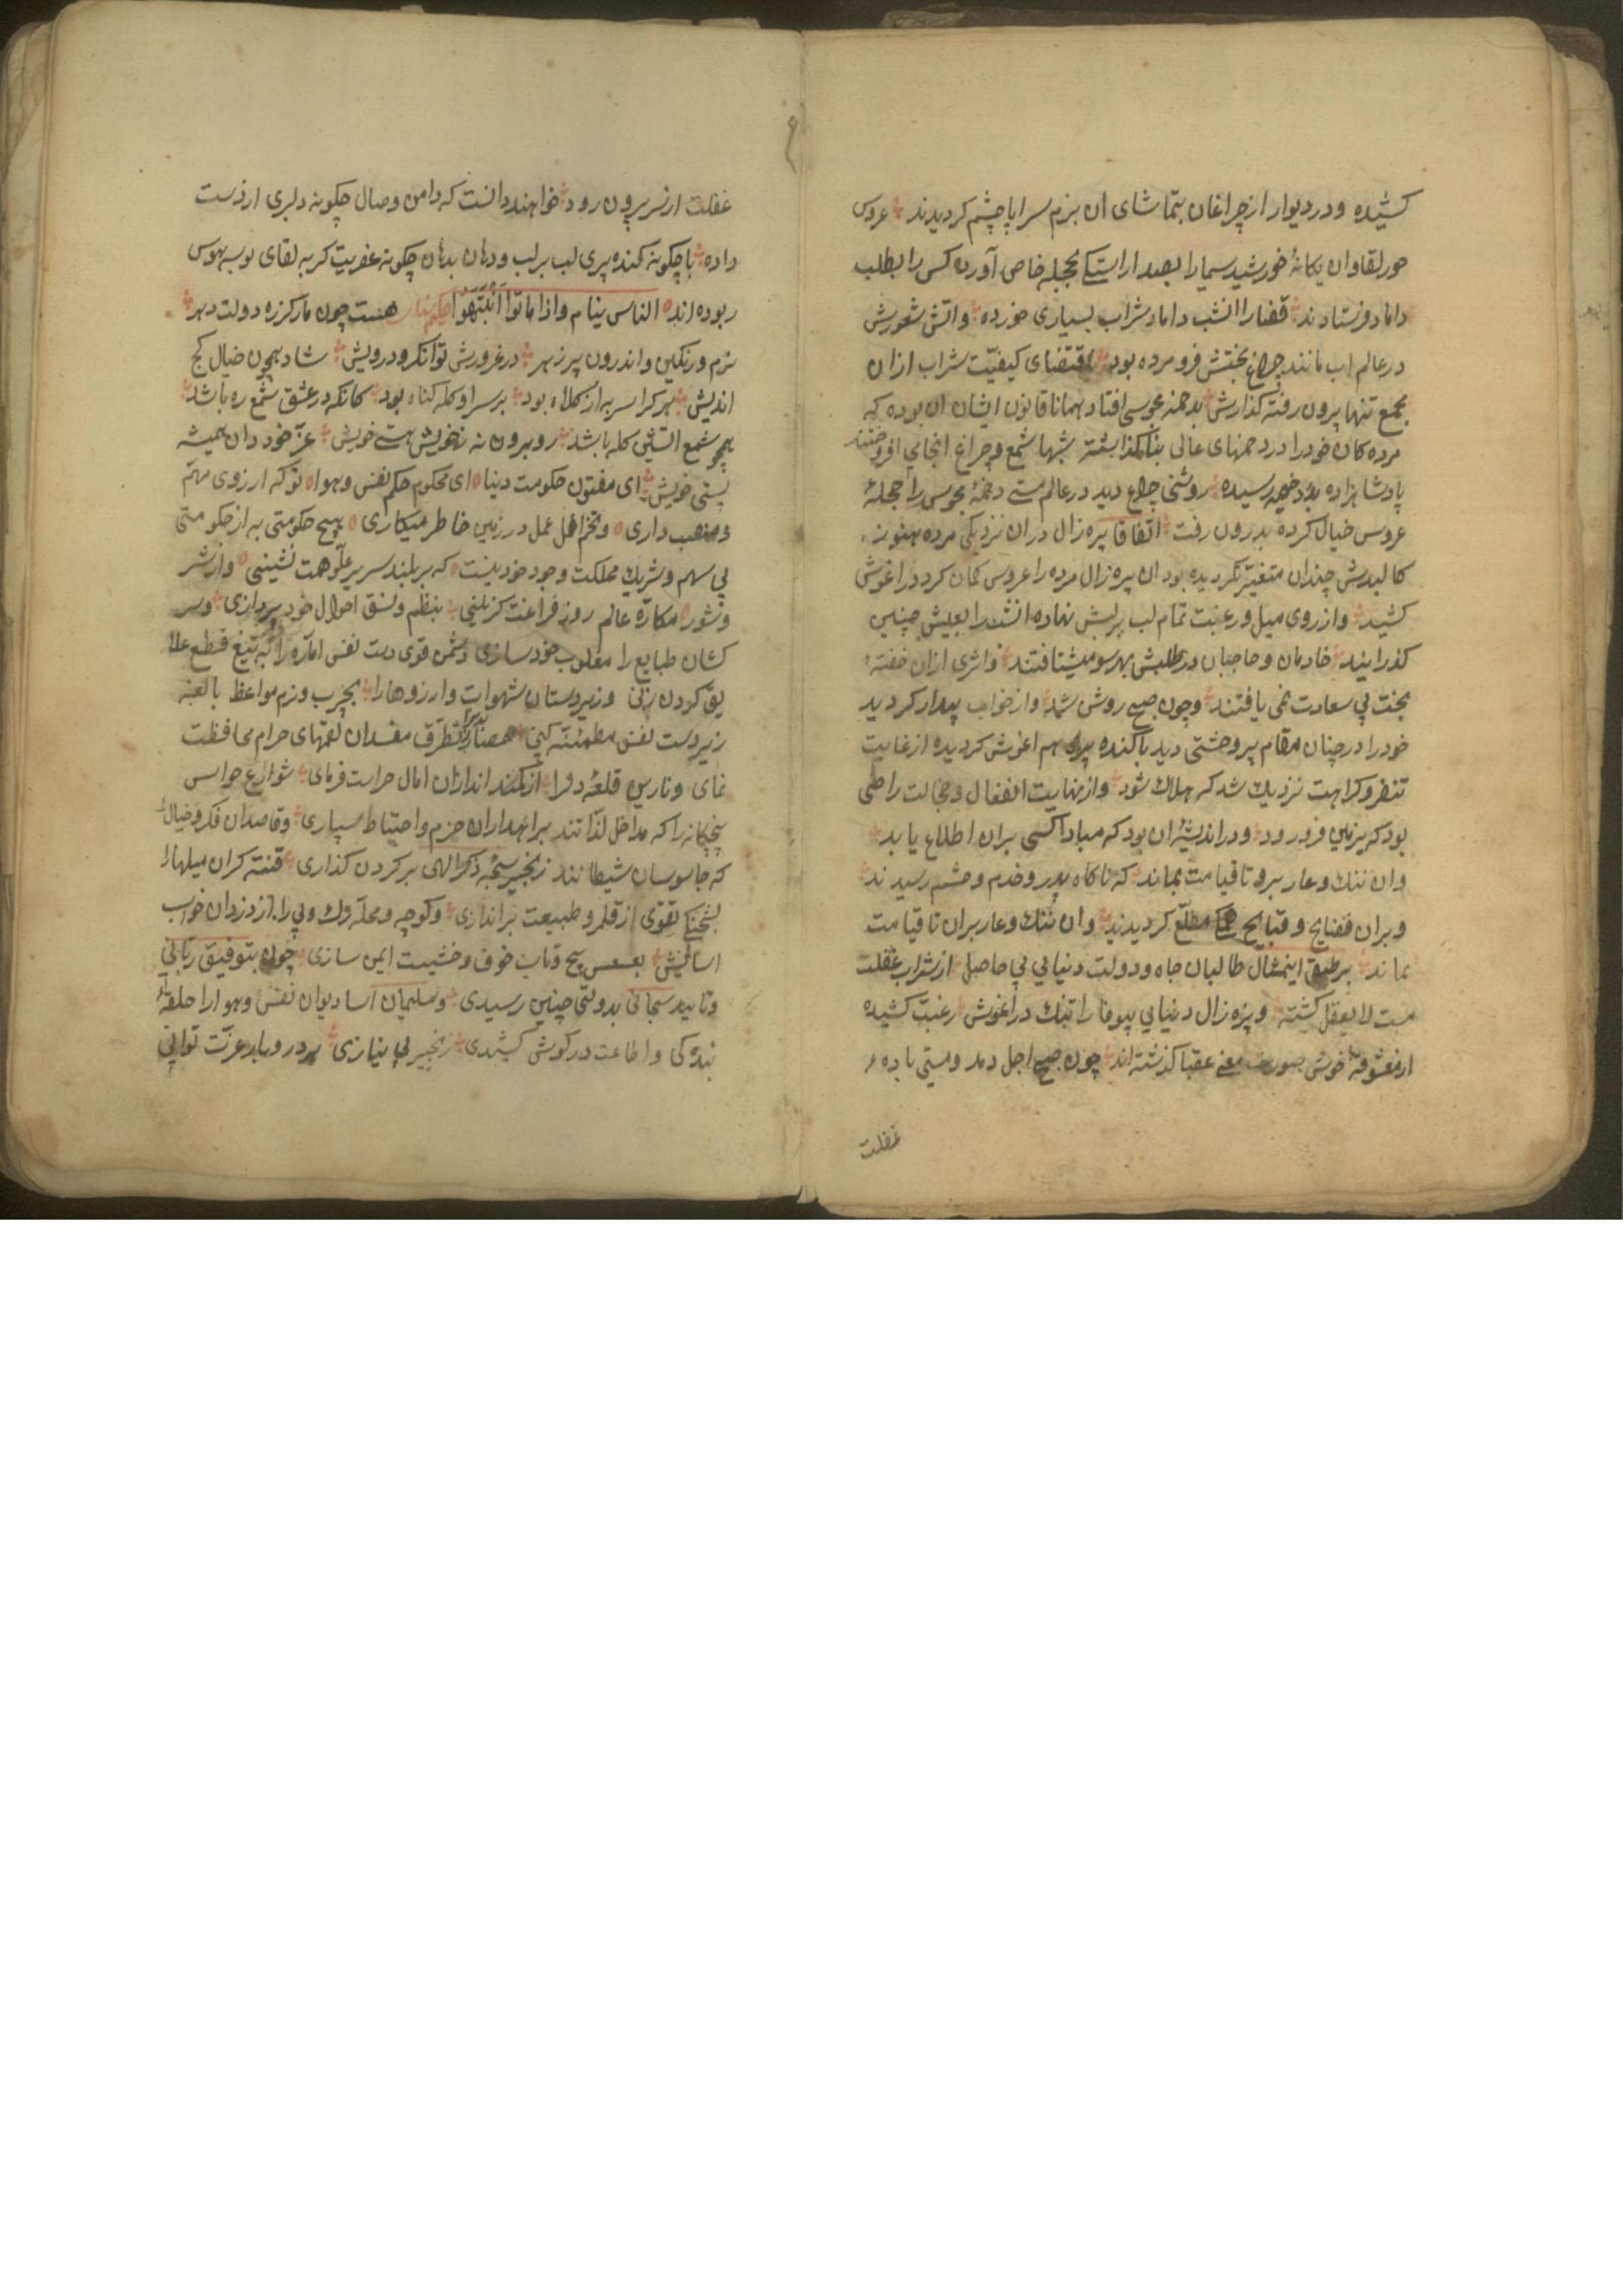 کشیده و در دیوار از چراغان بتماشای ان بزم سراپا چشم کردیدند عروس
حور لقا و ان یکانهٔ خورشید سیما را بصد اراستکی بحجلهٔ خاص آورده کس را بطلب
داماد فرستادند قضا را انشب داماد شراب بسیاری خورده و اتش شعورش
در عالم اب مانند چراغ بختش فرو مرده بود باقتضای کیفیّت شراب ازان
مجمع تنها بیرون رفته کذارش بدخمهٔ مجوسی افتاد همانا قانون ایشان ان بوده که
مرده کان خود را در دخمهای عالی بنا کذاشته شبها شمع و چراغ انجا می افروختند
پادشاهزاده بدر دخمه رسیده روشنی چراغ دید در عالم مستی دخمهٔ مجوس را حجلهٔ
عروس خیال کرده بدرون رفت اتفاقا پیره زال دران نزدیکی مرده هنوز
کالبدش چندان متغیّر نکردیده بود ان پیره زال مرده را عروس کمان کرد در اغوش
کشید و از روی میل و رغبت تمام لب بر لبش نهاده انشب را بعیش چنین
کذرانید خادمان و حاجبان در طلبش بهر سو میشتافتند و اثری ازان خفته
بخت بی سعادت نمی یافتند و چون صبح روشن شد و از خواب بیدار کردید
خود را در چنان مقام پر وحشتی دید با کنده پیری هم اغوش کردیده از غایت
تنفر و کراهت نزدیک شد که هلاک شود و از نهایت انفعال و خجالت راضی
بود که بزمین فرو رود و در اندیشهٔ ان بود که مبادا کسی بران اطلاع یابد
وان ننک و عار برو تا قیامت بماند که ناکاه پدر و خدم و حشم رسیدند
و بران فضایح و قبایح همکی مطلّع کردیدند و ان ننک و عار بران تا قیامت
بماند بر طبق اینمثال طالبان جاه و دولت دنیایی بی حاصل از شراب غفلت
مست لا یعقل کشته و پیره زال دنیایی بیوفا را تنک در اغوش رغبت کشیده
از معشوقهٔ خوش صورت معنی عقبا کذشته اند چون صبح اجل دمد و مستی باده
غفلت
غفلت از سر بیرون رود خواهند دانست که دامن وصال چکونه دلبری از دست
داده با چکونه کنده پیری لب بر لب و دهان بدهان چکونه عفریت کریه لقای بوسه هوس
ربوده اند الناس ینام و اذا ماتوا اَنْتَبَهُوا هست چون مار کرزه دولت دهر
نرم و رنکین و اندرون پر زهر در غرورش توانکر و درویش شاد همچون خیال کج
اندیش هر کرا سر به از کلاه بود بر سر او کله کناه بود کانکه در عشق شمع ره باشد
همچو شمع اتشین کله باشد رو برون نه نخویش هستی خویش عزّ خود دان همیشه
پستی خویش ای مفتون حکومت دنیا ای محکوم حکم نفس و هوا توکه ارزوی مهمّ
و منصب داری و تخم امل عمل در زمین خاطر میکاری هیچ حکومتی به از حکومتی
بی سهم و شریک مملکت وجود خود نیست که بر بلند سریر علّو همت نشینی و از شر
و شور مکارّه عالم روز فراغت کزینی بنظم و نسق احوال خود پردازی و سر
کشان طبایع را مغلوب خود سازی دشمن قوی دست نفس امّاره را به تیغ قطع علا
یق کردن زنی و زیر دستان شهوات و ارزوها را بچرب و نرم مواعظ بالغه
زیر دست نفس مطمئنّه کنی حصار بدن را از تطرق مفسدان لقمهای حرام محافظت
نمای و نارین قلعهٔ دلرا از کمند اندازان امال حراست فرمای شوارع حواس
پنجکانه را که مداخل لذّاتند براهداران حزم و احتیاط سپاری و قاصدان فکر و خیال
که جاسوسان شیطانند زنجیر سبحهٔ ذکر الهی بر کردن کذاری فتنه کران میلها را
بشحنکی تقوی از قلمرو طبیعت براندازی و کوچه و محلّه رک و پی را از دزدان خواب
اسایش بعسس پیچ و تاب خوف و خشیت ایمن سازی چون بتوفیق ربّانی
و تایید سبحانی بدولتی چنین رسیدی و سلیمان اسا دیوان نفس و هوا را حلقهٔ
بنده کی و اطاعت در کوش کشیدی زنجیر بی نیازی بر در و بار عزّت توانی